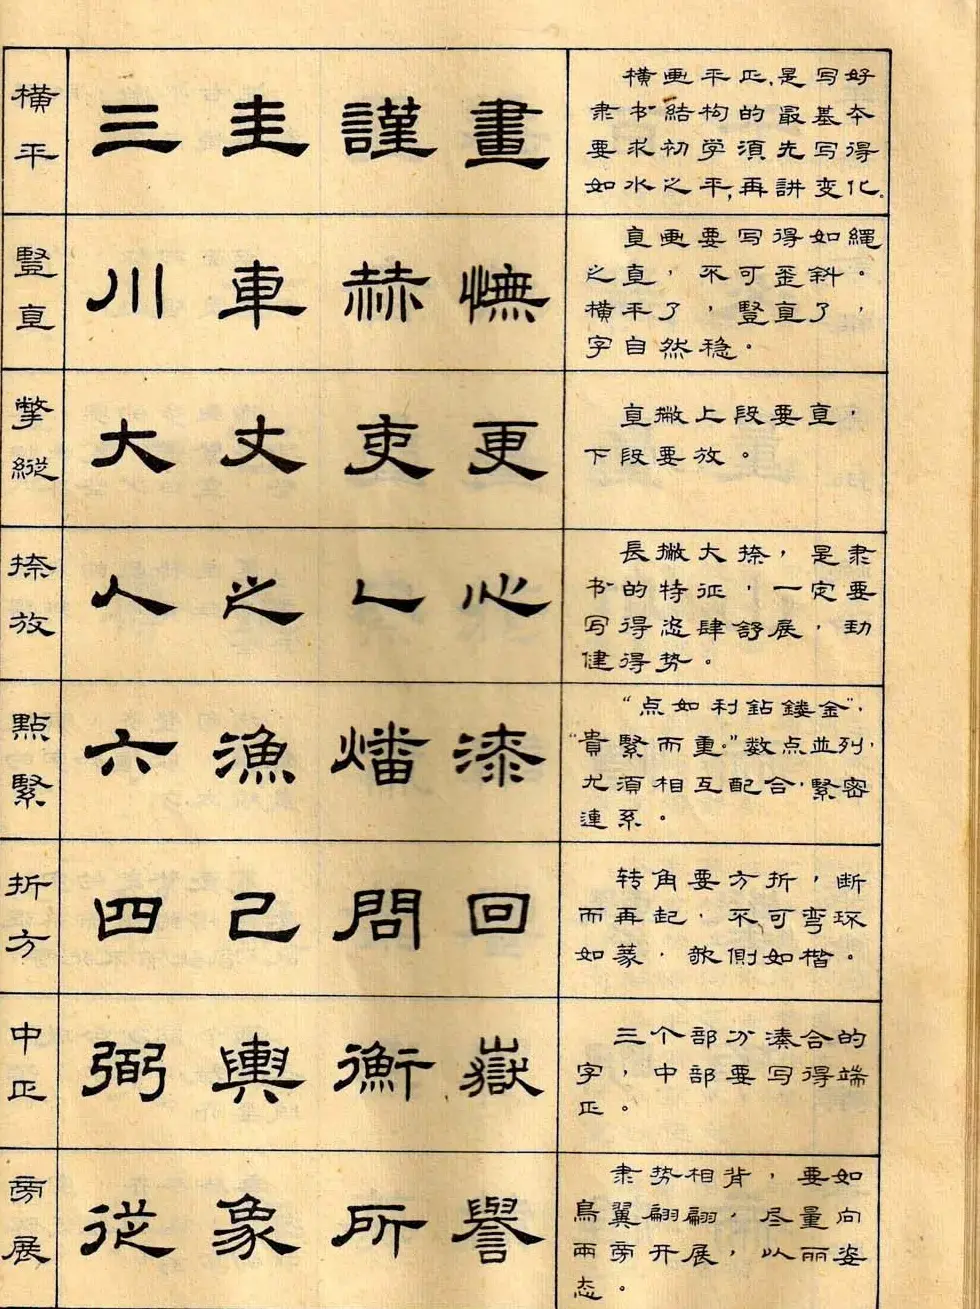 横平
三 圭 謹 畫
横画平正,是写好
隶书结构的最基本
要求初学须先写得
如水之平,再讲变化。
豎直
川 車 赫 憮
直画要写得如繩
之直,不可歪斜。
横平了,豎直了,
字自然稳。
撆縱
大 丈 吏 更
直撇上段要直,
下段要放。
捺放
人 之 乀 心
長撇大捺,是隶
书的特征,一定要
写得恣肆舒展,劲
健得势。
點緊
六 漁 燔 漆
“点如利鉆鏤金”,
“貴緊而重。”数点並列,
尤須相互配合,緊密
連系。
折方
四 己 問 回
转角要方折,断
而再起,不可弯环
如篆,欹側如楷。
中正
弼 輿 衡 嶽
三个部分湊合的
字,中部要写得端
正。
旁展
從 象 所 譽
隶势相背,要如
鳥翼翩翩,尽量向
兩旁开展,以丽姿
态。